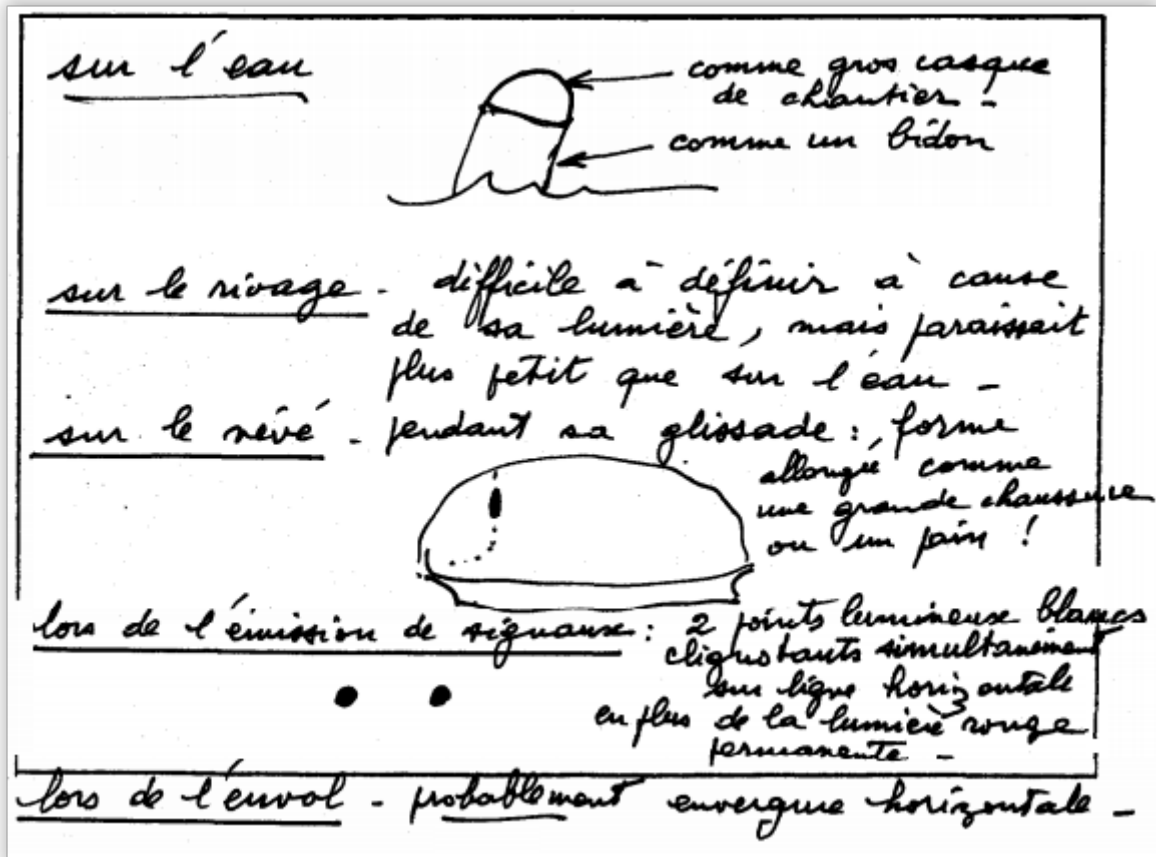 sur l'eau
comme gros casque
de chantier -
comme un bidon
sur le rivage - difficile à définir à cause
de sa lumière, mais paraissait
plus petit que sur l'eau -
sur le névé - pendant sa glissade : forme
allongée comme
une grande chaussure
ou un pain !
lors de l'émission de signaux : 2 points lumineux blancs
clignotants simultanément
sur ligne horizontale
en plus de la lumière rouge
permanente -
lors de l'envol - probablement envergure horizontale -